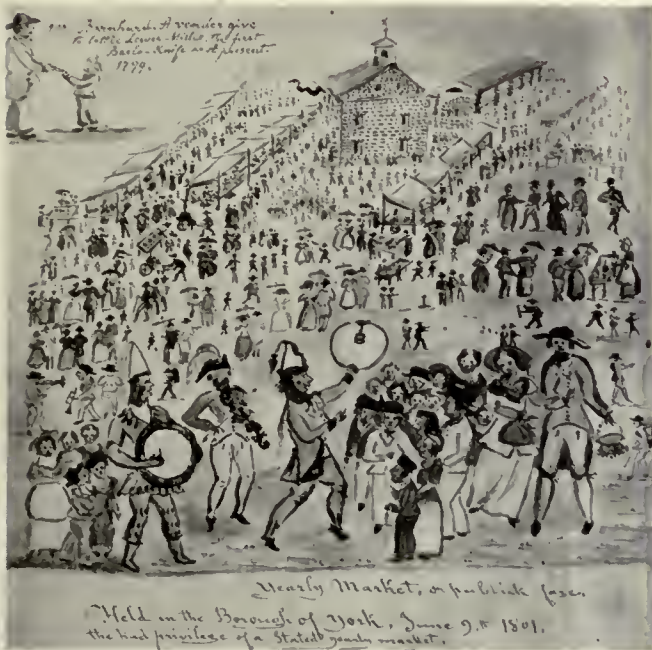 Bernhard. A reender give
to little Lewer Miller, the first
Barlo-Knife as a present.
1779.
Yearly Market, or publick fare.
Held in the Borough of York, June 9.th 1801.
the had privilege of a Stated yearly market.